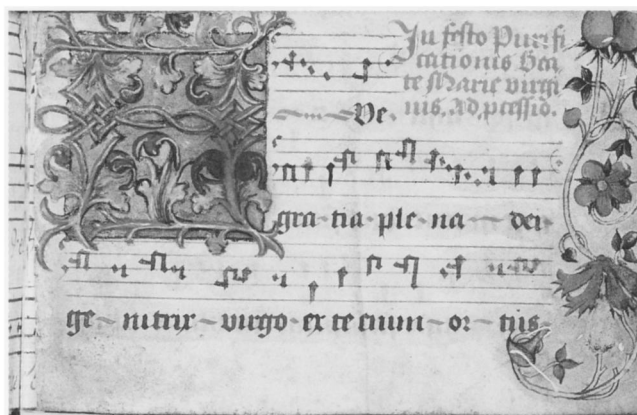 In festo Purifi
cationis bea
te Marie virgi
nis. Ad. pcessio.
Ve
gra tia ple na dei
ge nitrix virgo ex te enim or tus